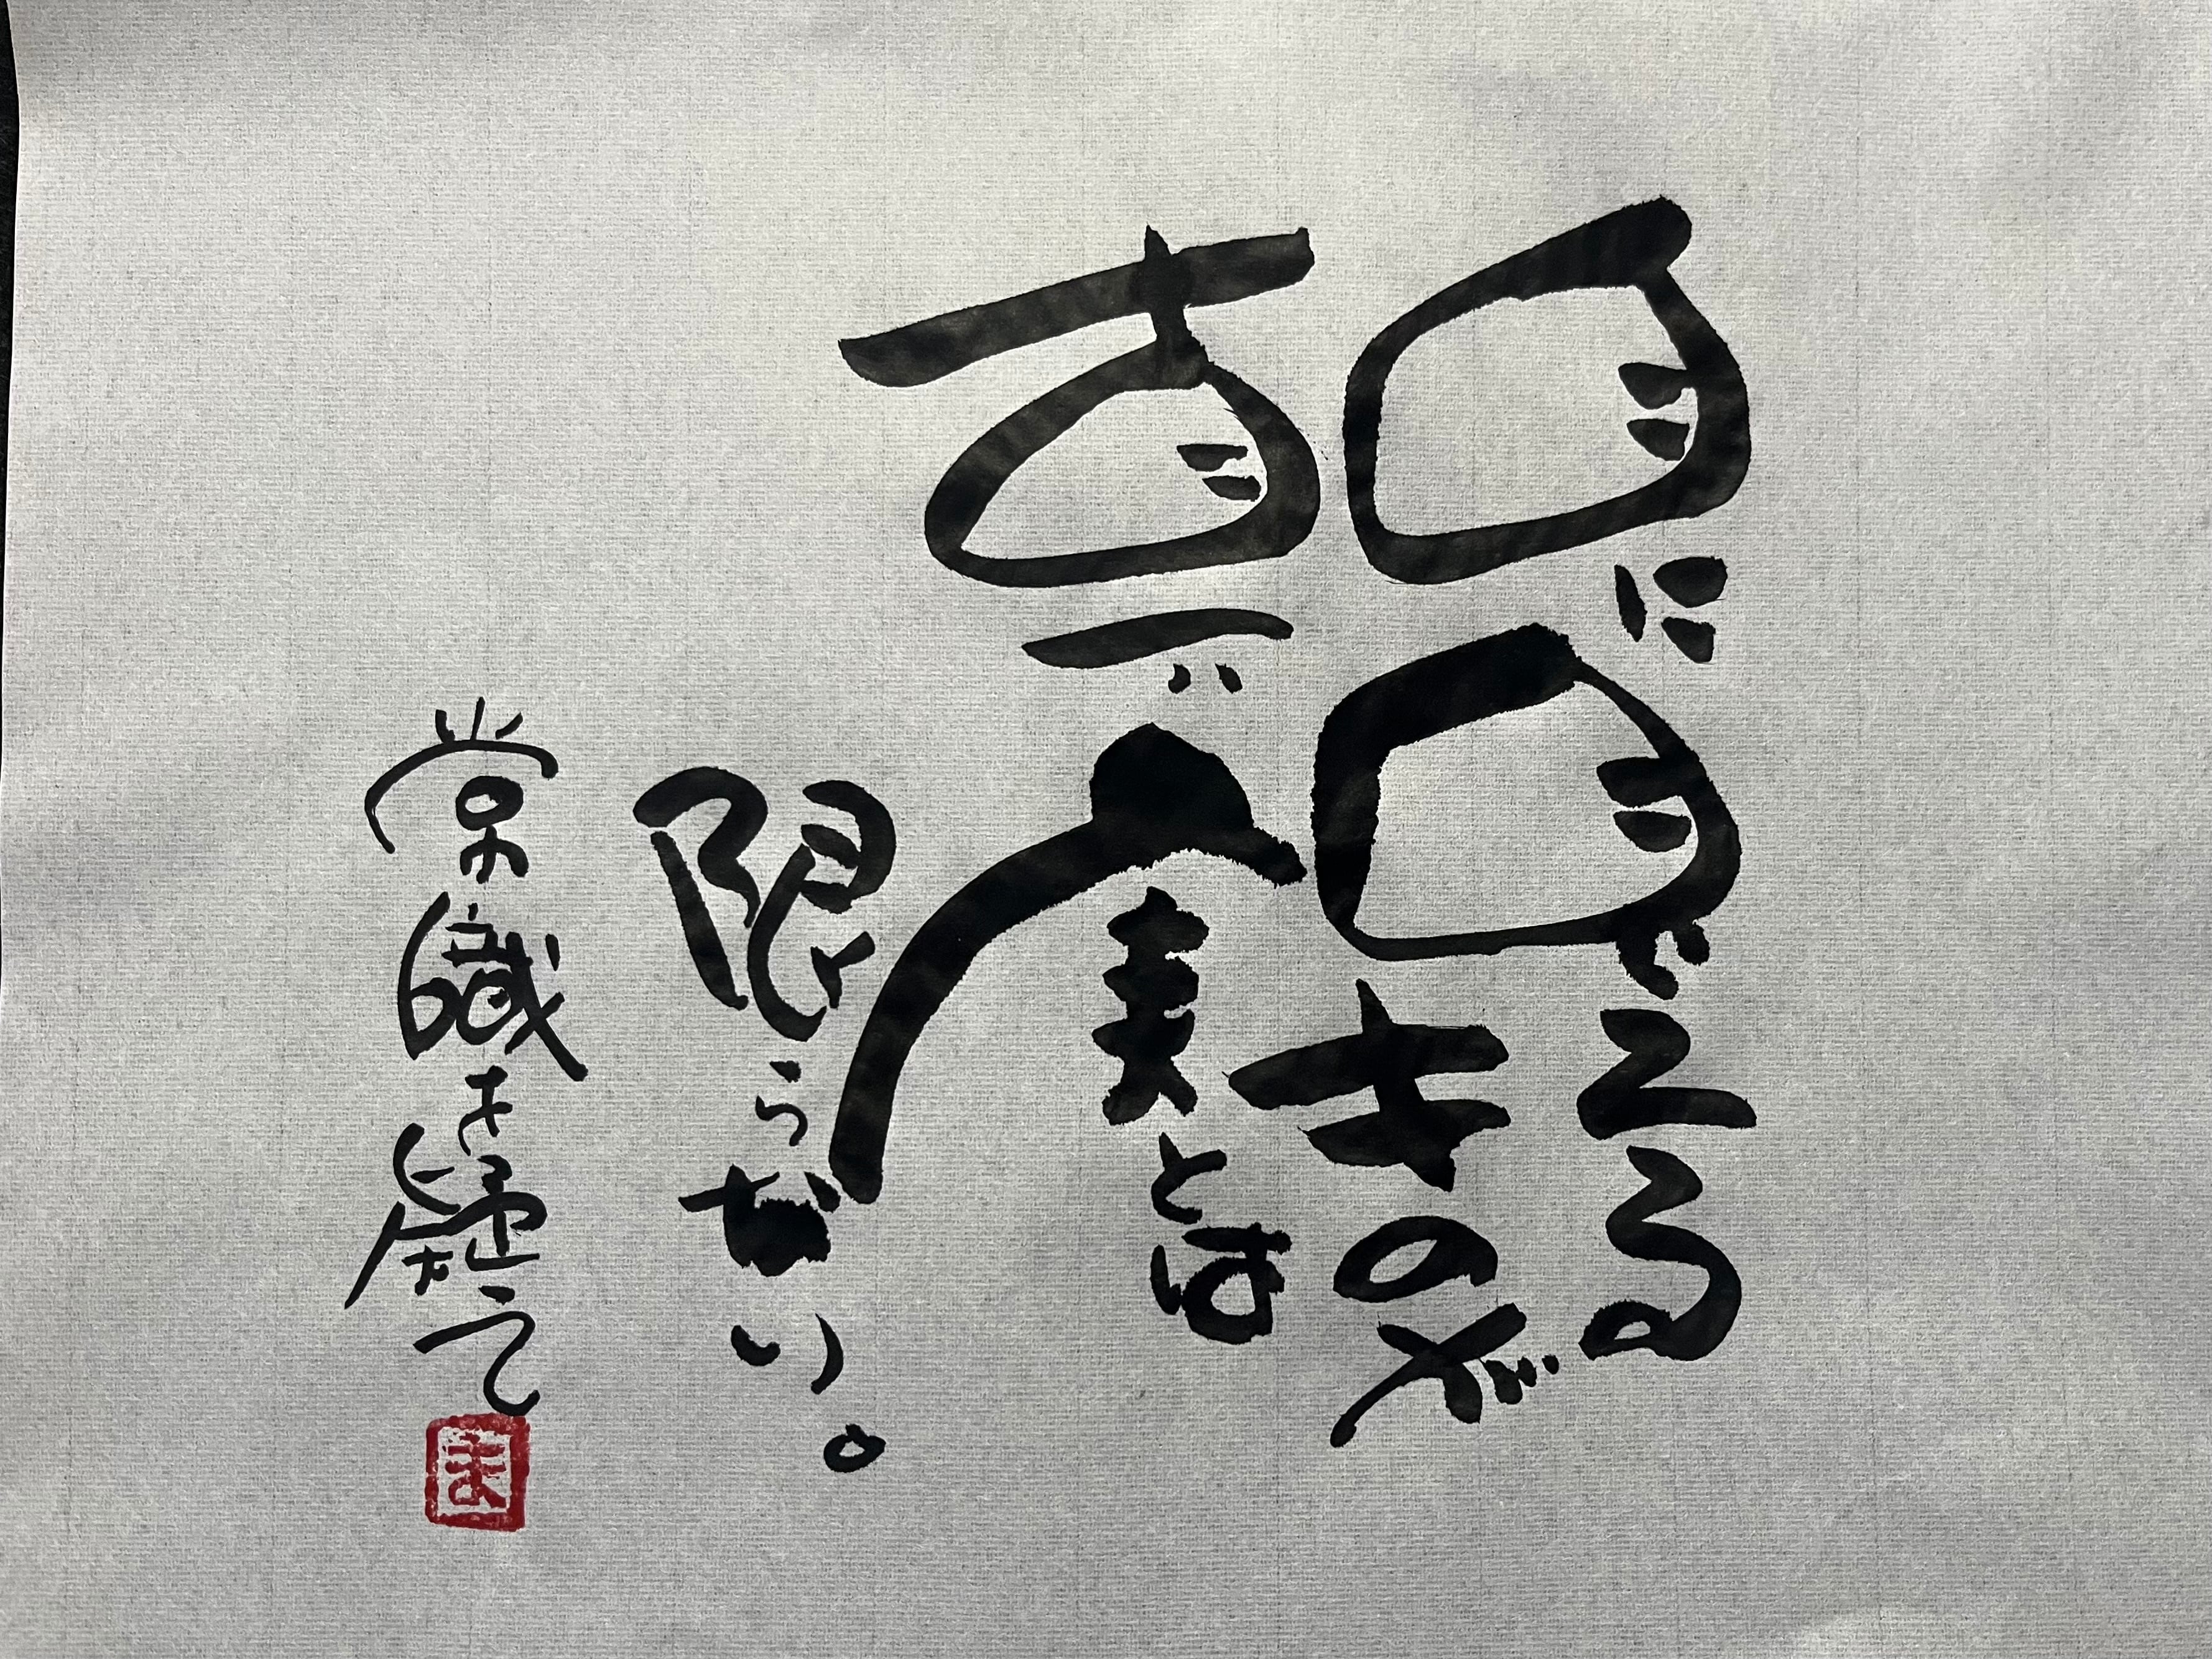 目に見える
ものが
真実とは
限らない。
常識を疑え
ま